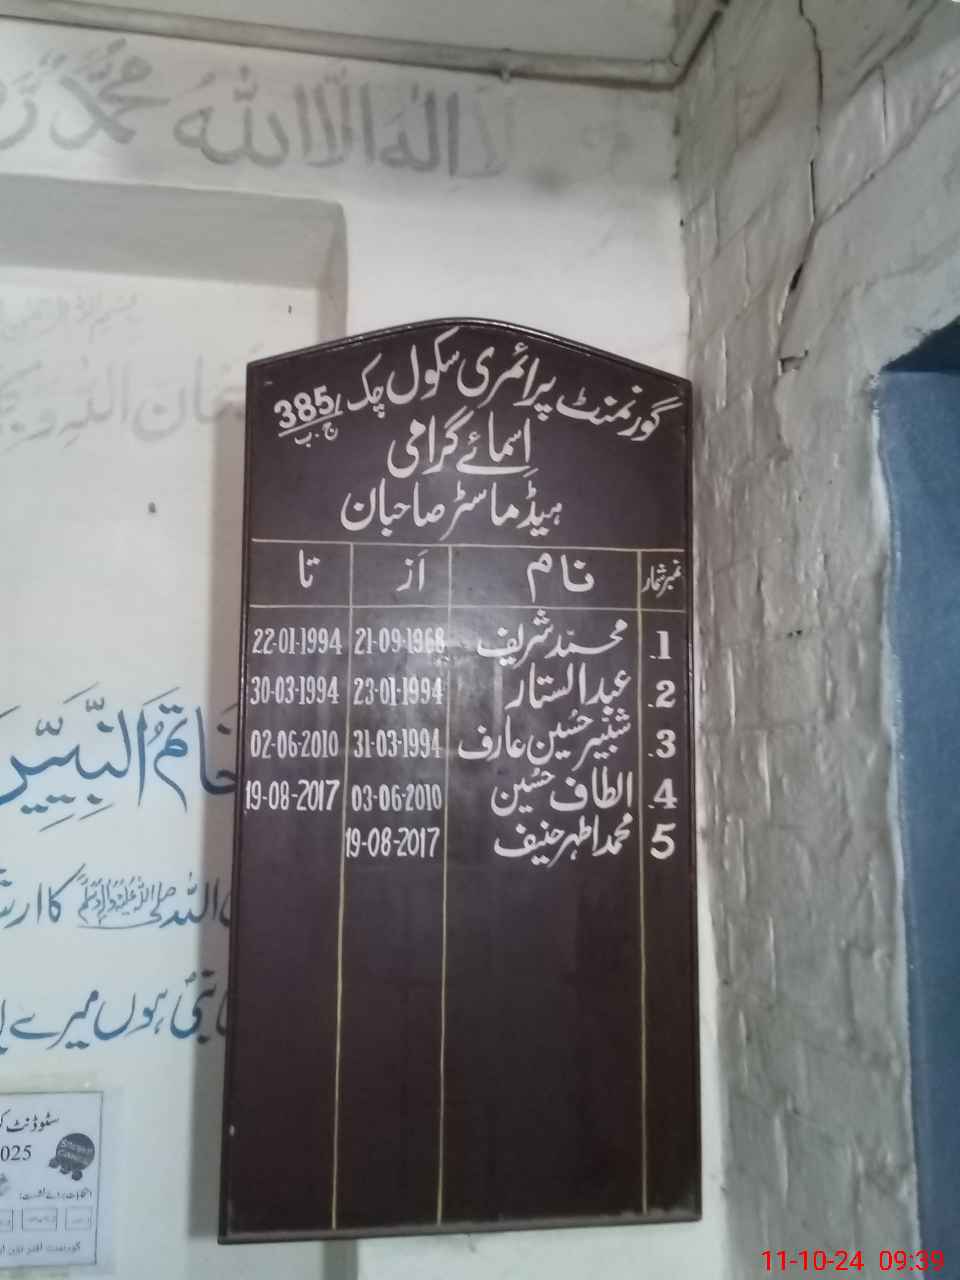 لا الہ الا اللہ محمد
گورنمنٹ پرائمری سکول چک 385/ج.ب
اسمائے گرامی
ہیڈماسٹر صاحبان
نمبر شمار نام از تا
1. محمد شریف 21-09-1968 22-01-1994
2. عبدالستار 23-01-1994 30-03-1994
3. شبیر حسین عارف 31-03-1994 02-06-2010
4. الطاف حسین 03-06-2010 19-08-2017
5 محمد اطہر حنیف 19-08-2017
خَاتَمُ النَّبِیّٖنَ
اللہ صلی اللہ علیہ وآلہ وسلم کا
نبی ہوں میرے
سٹوڈنٹ
025
11-10-24 09:39